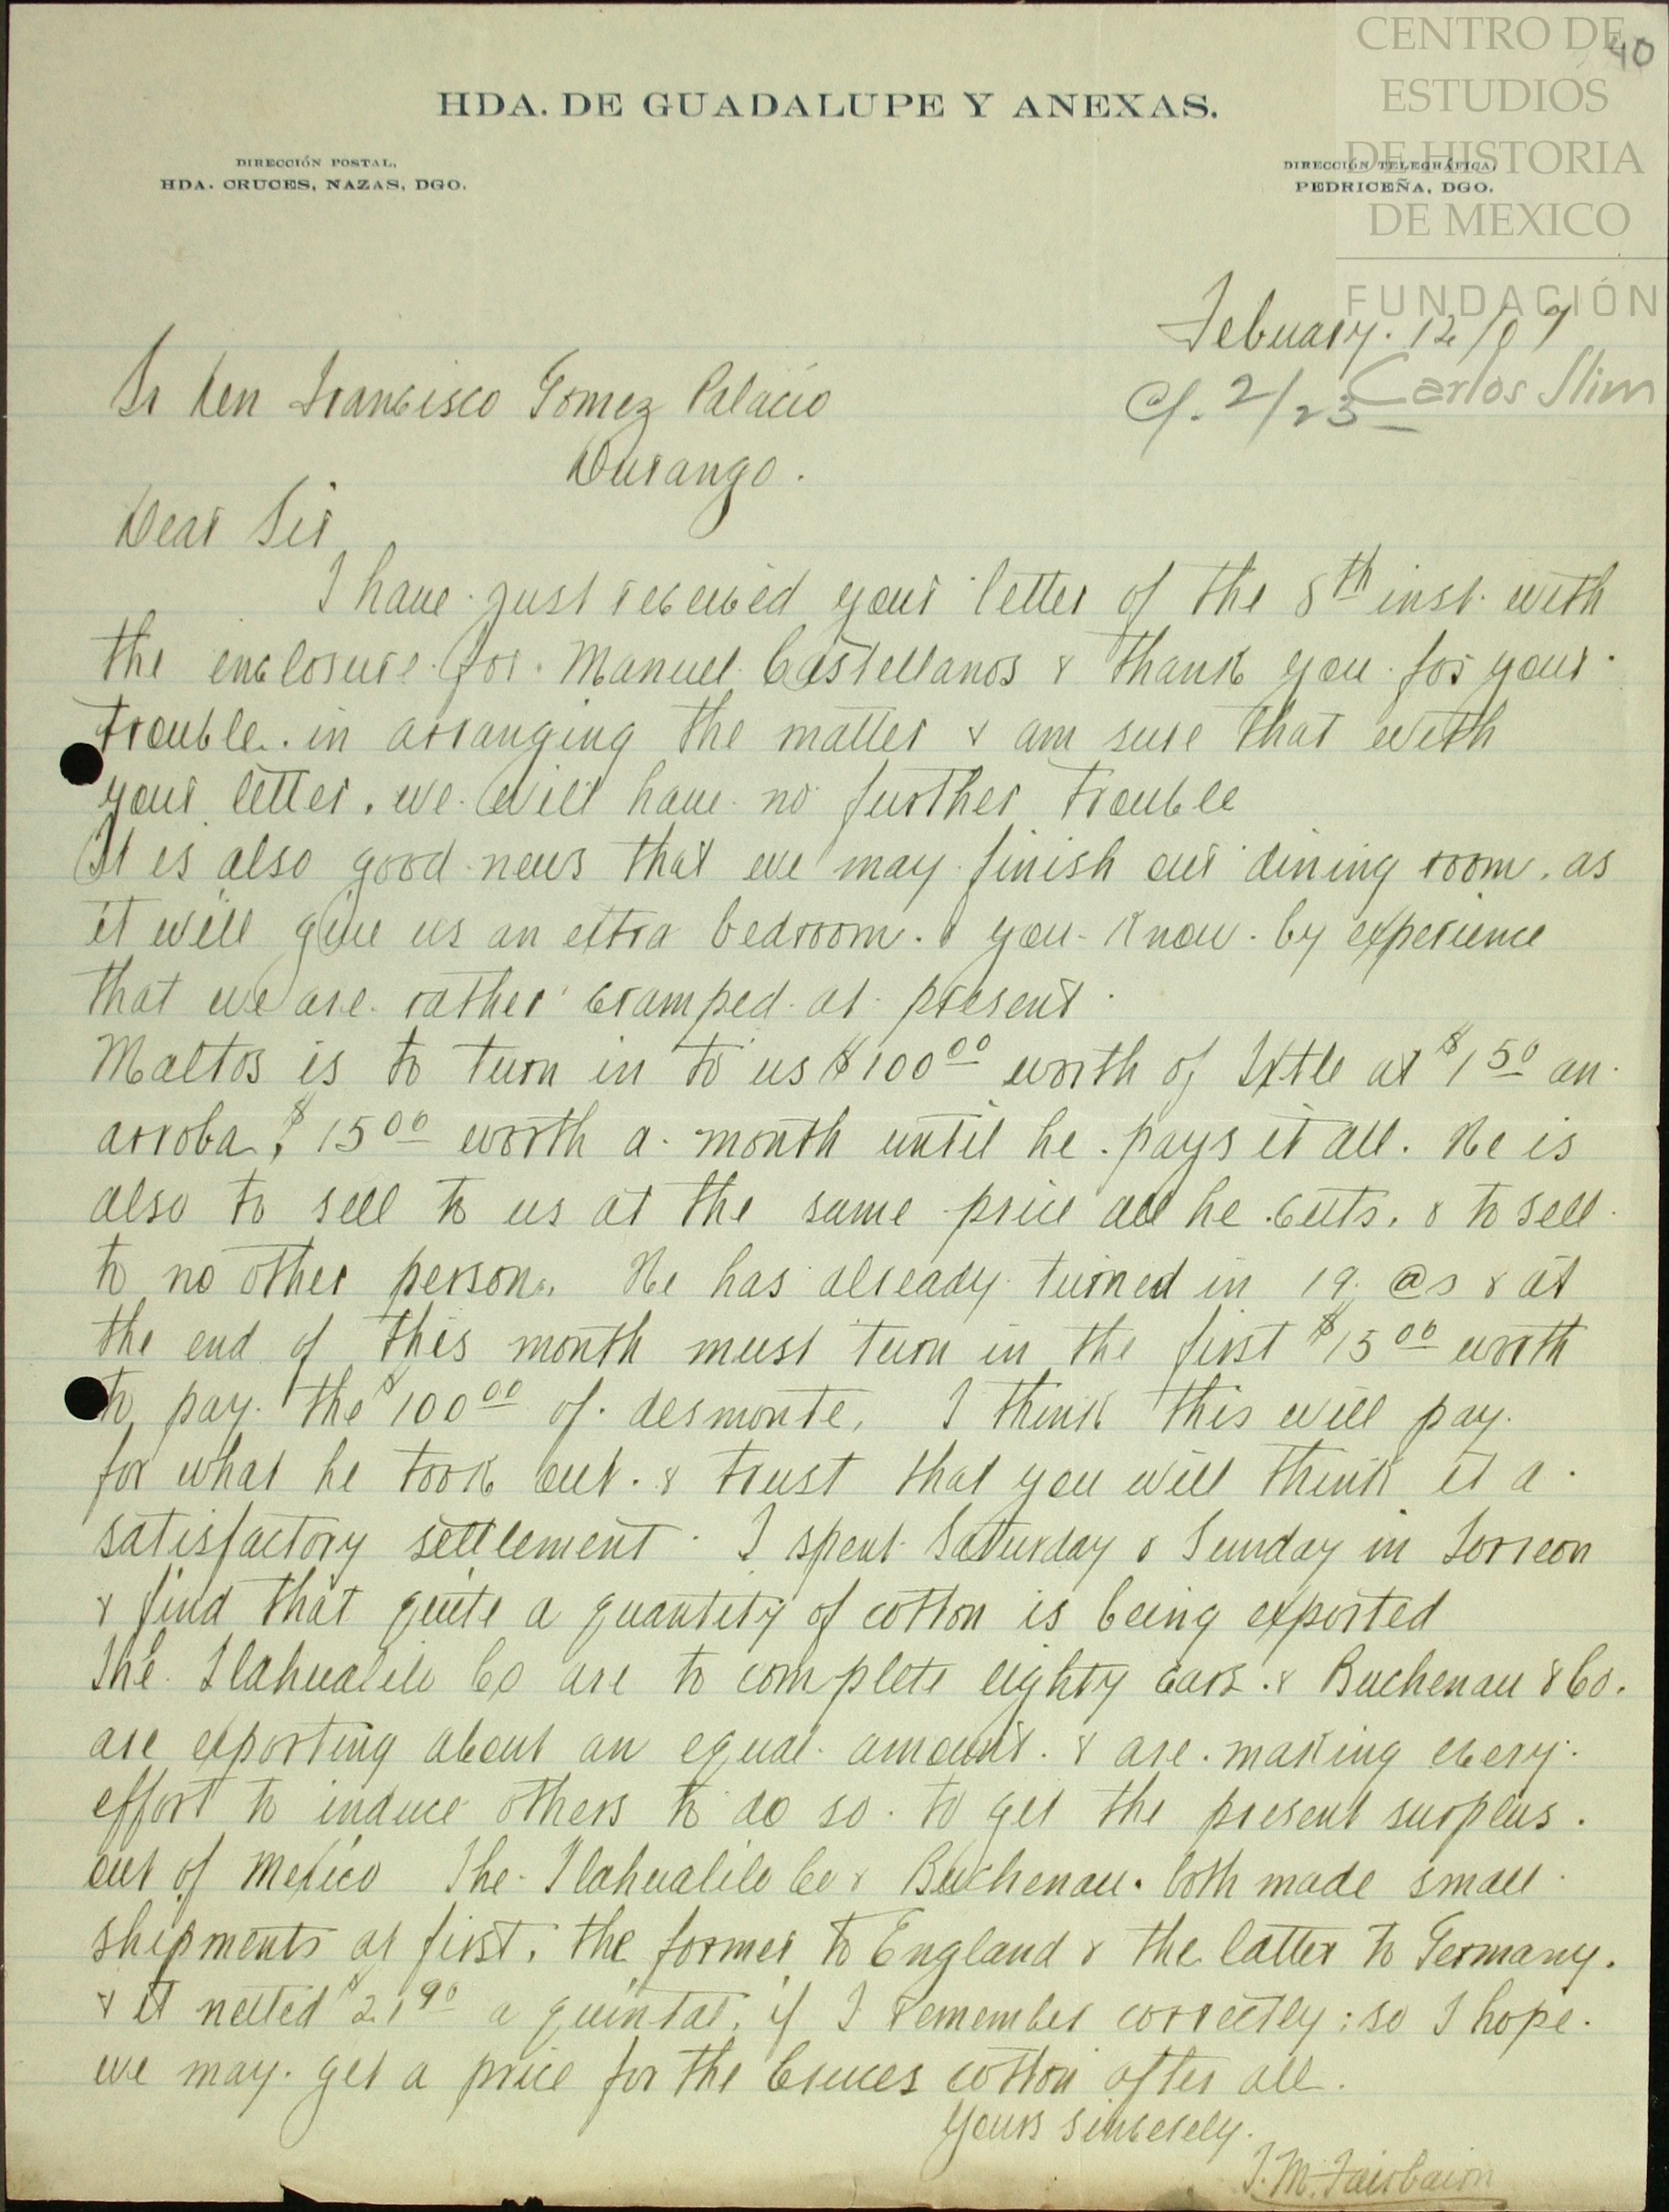 CENTRO DE
ESTUDIOS
DE HISTORIA
DE MEXICO
FUNDACIÓN
Carlos Slim
40
HDA. DE GUADALUPE Y ANEXAS.
DIRECCIÓN POSTAL,
HDA. CRUCES, NAZAS, DGO.
DIRECCIÓN TELEGRÁFICA,
PEDRICEÑA, DGO.
Febuary. 12/09
C/. 2/23
Sr Don Francisco Gomez Palacio
Durango.
Dear Sir
I have just received your letter of the 8th inst. with
the enclosure for Manuel Castellanos & thank you for your
trouble in arranging the matter & am sure that with
your letter, we will have no further trouble
It is also good news that we may finish our dining room, as
it will give us an extra bedroom. & you know by experience
that we are rather cramped at present.
Maltos is to turn in to us $100 00 worth of Ixtle at $1 50 an
arroba, $15 00 worth a month until he pays it all. He is
also to sell to us at the same price all he cuts, & to sell
to no other person. He has already turned in 19 @s & at
the end of this month must turn in the first $15 00 worth
to pay the $100 00 of desmonte, I think this will pay
for what he took out. & trust that you will think it a
satisfactory settlement. I spent Saturday & Sunday in Torreon
& find that quite a quantity of cotton is being exported
The Tlahualilo Co are to complete eighty cars & Buchenau & Co.
are exporting about an equal amount. & are making every
effort to induce others to do so to get the present surplus
out of Mexico The Tlahualilo Co & Buchenau. both made small
shipments at first, the former to England & the latter to Germany.
& it netted $21 90 a quintal, if I remember correctly; so I hope
we may get a price for the Cruces cotton after all.
Yours sincerely.
J. M. Fairbairn